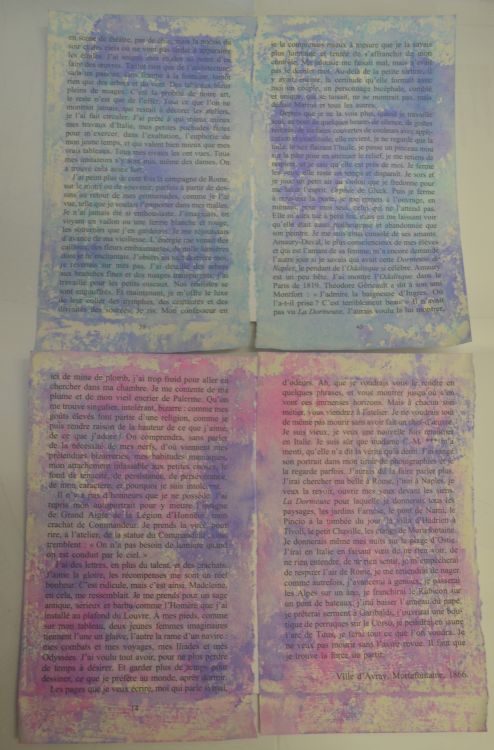 en scène de théâtre, pas de ciel, mais la nacelle du
les études. J'ai toujours mes études au point d'en
faire des œuvres. Tantôt rien que de l'architecture
sans un passant, sans femme à la fontaine, tantôt
rien que des arbres et du vent. Des tableaux bleus
pleins de nuages. C'est la poésie de notre art,
le reste n'est que de l'enfer. Tout ce que l'on ne
montrait jamais, qui restait à décorer les ateliers,
je l'ai fait circuler. J'ai prêté à qui mieux mieux
mes travaux d'Italie, mes petites pochades faites
pour m'exercer, dans l'exaltation, l'euphorie de
mon jeune temps, et qui valent bien mieux que mes
vrais tableaux. Tous mes élèves les ont vues. Tous
mes imitateurs s'y sont mis, même des dames. On
a trouvé cela assez fort.
J'ai peint plus de cent fois la campagne de Rome,
sur le motif ou de souvenir, parfois à partir de des-
sins au retour de mes promenades, comme le Pai
vue, telle que je voulais l'emporter dans mes malles.
Je n'ai jamais été si enthousiaste. J'imaginais, en
voyant un vallon ou une ferme blanche et rouge,
les souvenirs que j'en garderais. Je me réjouissais
d'avance de ma vieillesse. L'énergie me venait des
dont je m'enchantais. J'obtiens au toit dernier mot,
je revenais sur mes pas. J'ai détaillé des arbres
aux branches fines et des nuages transparents, j'ai
travaillé pour les petits oiseaux. Nos ancêtres se
sont engouffrés. Et maintenant, je m'offre le luxe
de leur mêler des nymphes, des centaures et des
divinités des sources. Je ris. Mon confesseur en
39
je la compagnais mieux à mesure que je la savais
plus lointaine et tentée de s'affranchir de mon
contrôle. Ma jalousie me faisait mal, mais n'était
pas le dernier mot. Au-delà de la petite torture, il
y avait encore la certitude qu'elle formait avec
moi un couple, un personnage bicéphale, comblé
et unique, qui se taisait, ne se montrait pas, mais
défiait Marius et tous les autres.
Depuis que je ne la vois plus, quand je travaille
seul, au bout de quelques heures de silence, de gestes
retenus, de surfaces couvertes de couleurs avec appli-
cation et monotonie, elle revient, je ne regarde que la
toile, je sens flairant l'huile, je passe un pinceau mou
sur la pâte pour en atténuer le relief, je me retiens de
respirer, et je sais qu'elle est près de moi. Je ferme
les yeux, elle reste un temps et disparaît. Je sors et
je joue un petit air au violon que je fredonne pour
me laver l'esprit, l'Orphée de Gluck. Puis je ferme
à nouveau la porte, je me remets à l'ouvrage, en
manant, pour mon seul, celui qui ne m'attend pas.
Elle m'aura tué à petit feu, mais en me laissant voir
qu'elle était aussi malheureuse et abandonnée que
son peintre. Je me suis bien consolé de ses amants.
Amaury-Duval, le plus consciencieux de mes élèves
et qui est l'amant de sa femme, m'a encore demandé
l'autre jour si je savais qui avait cette Dormeuse de
Naples, le pendant de l'Odalisque si célèbre. Amaury
est un peu bête. J'ai montré l'Odalisque dans le
Paris de 1819. Théodore Géricault a dit à son ami
Montfort : « J'admire la baigneuse d'Ingres. On
l'a-t-il prise ? C'est terriblement beau. » Il n'avait
pas vu La Dormeuse. J'aurais voulu la lui montrer,
40
ici de mine de plomb, j'ai trop froid pour aller en
chercher dans ma chambre. Je me contente de ma
plume et de mon vieil encrier de Palerme. Qu'on
me trouve singulier, intolérant, bizarre : comme mes
goûts élevés font partie d'une religion, comme je
puis rendre raison de la hauteur de ce que j'aime,
de ce que j'adore ! On comprendra, sans parler
de la nécessité de mes nerfs, d'où viennent mes
prétendues bizarreries, mes habitudes maniaques,
mon attachement inlassable aux petites choses, le
fond de ténacité, de persistance, de persévérance,
de mon caractère, et pourquoi je suis intolérant.
Il n'y a pas d'honneurs que je ne possède. J'ai
repris mon autoportrait pour y mettre l'insigne
de Grand Aigle de la Légion d'Honneur, mon
crachat de Commandeur. Je prends la voix, pour
rire, à l'atelier, de la statue du Commandeur ; tous
tremblent : « On n'a pas besoin de lumière quand
on est conduit par le ciel. »
J'ai des lettres, en plus du talent, et des crachats.
J'aime la gloire, les récompenses me sont un réel
bonheur. C'est ridicule, mais c'est ainsi. Madeleine,
en cela, me ressemblait. Je me prends pour un sage
antique, sérieux et barbu comme l'Homère que j'ai
installé au plafond du Louvre. À mes pieds, comme
sur mon tableau, deux jeunes femmes imaginaires
tiennent l'une un glaive, l'autre la rame d'un navire :
mes combats et mes voyages, mes Iliades et mes
Odyssées. J'ai voulu tout avoir, pour ne plus perdre
de temps à désirer. Et garder plus de temps pour
dessiner, ce que je préfère au monde, après dormir.
Les pages que je veux écrire, moi qui parle si mal,
14
d'odeurs. Ah, que je voudrais vous le rendre en
quelques phrases, et vous montrer jusqu'où s'en
vont ces immenses horizons. Mais à chacun son
métier, vous viendrez à l'atelier. Je ne voudrais tout
de même pas mourir sans avoir fait un chef-d'œuvre.
Je suis vieux, je veux une nouvelle fois remettre
en Italie. Je suis sûr que madame C. M. *** m'a
menti, qu'elle n'a dit la vérité qu'à demi. J'ai rangé
son portrait dans mon tiroir de photographies et je
la regarde parfois. J'aurais dû la faire parler plus.
J'irai chercher ma belle à Rome, j'irai à Naples, je
veux la revoir, ouvrir mes yeux devant les siens.
La Dormeuse pour laquelle je donnerais tous les
paysages, les jardins Farnèse, le pont de Narni, le
Pincio à la tombée du jour, la villa d'Hadrien à
Tivoli, le petit Chaville, les étangs de Mortefontaine.
Je donnerais même mes nuits sur la plage d'Ostie.
J'irai en Italie en faisant vœu de ne rien voir, de
ne rien entendre, de ne rien sentir, je m'empêcherai
de respirer l'air de Rome, je me retiendrai de nager
comme autrefois, j'avancerai à genoux, je passerai
les Alpes sur un âne, je franchirai le Rubicon sur
un pont de bateaux, j'irai baiser l'anneau du pape,
je prêterai serment à Garibaldi, j'ouvrirai une bou-
tique de perruques sur le Corso, je peindrai en jaune
l'arc de Titus, je ferai tout ce que l'on voudra. Je
ne veux pas mourir sans l'avoir revue. Il faut que
je trouve la force de partir.
Ville d'Avray, Mortefontaine, 1866.